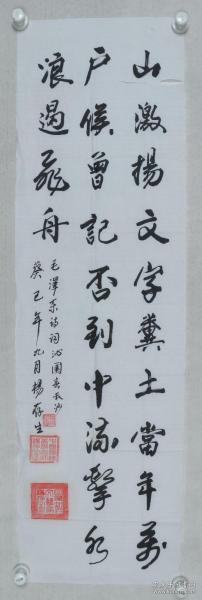 山激揚文字糞土當年萬
戶候曾記否到中流擊水
浪遏飛舟
毛澤東詩詞沁園春長沙
癸巳年九月楊存生